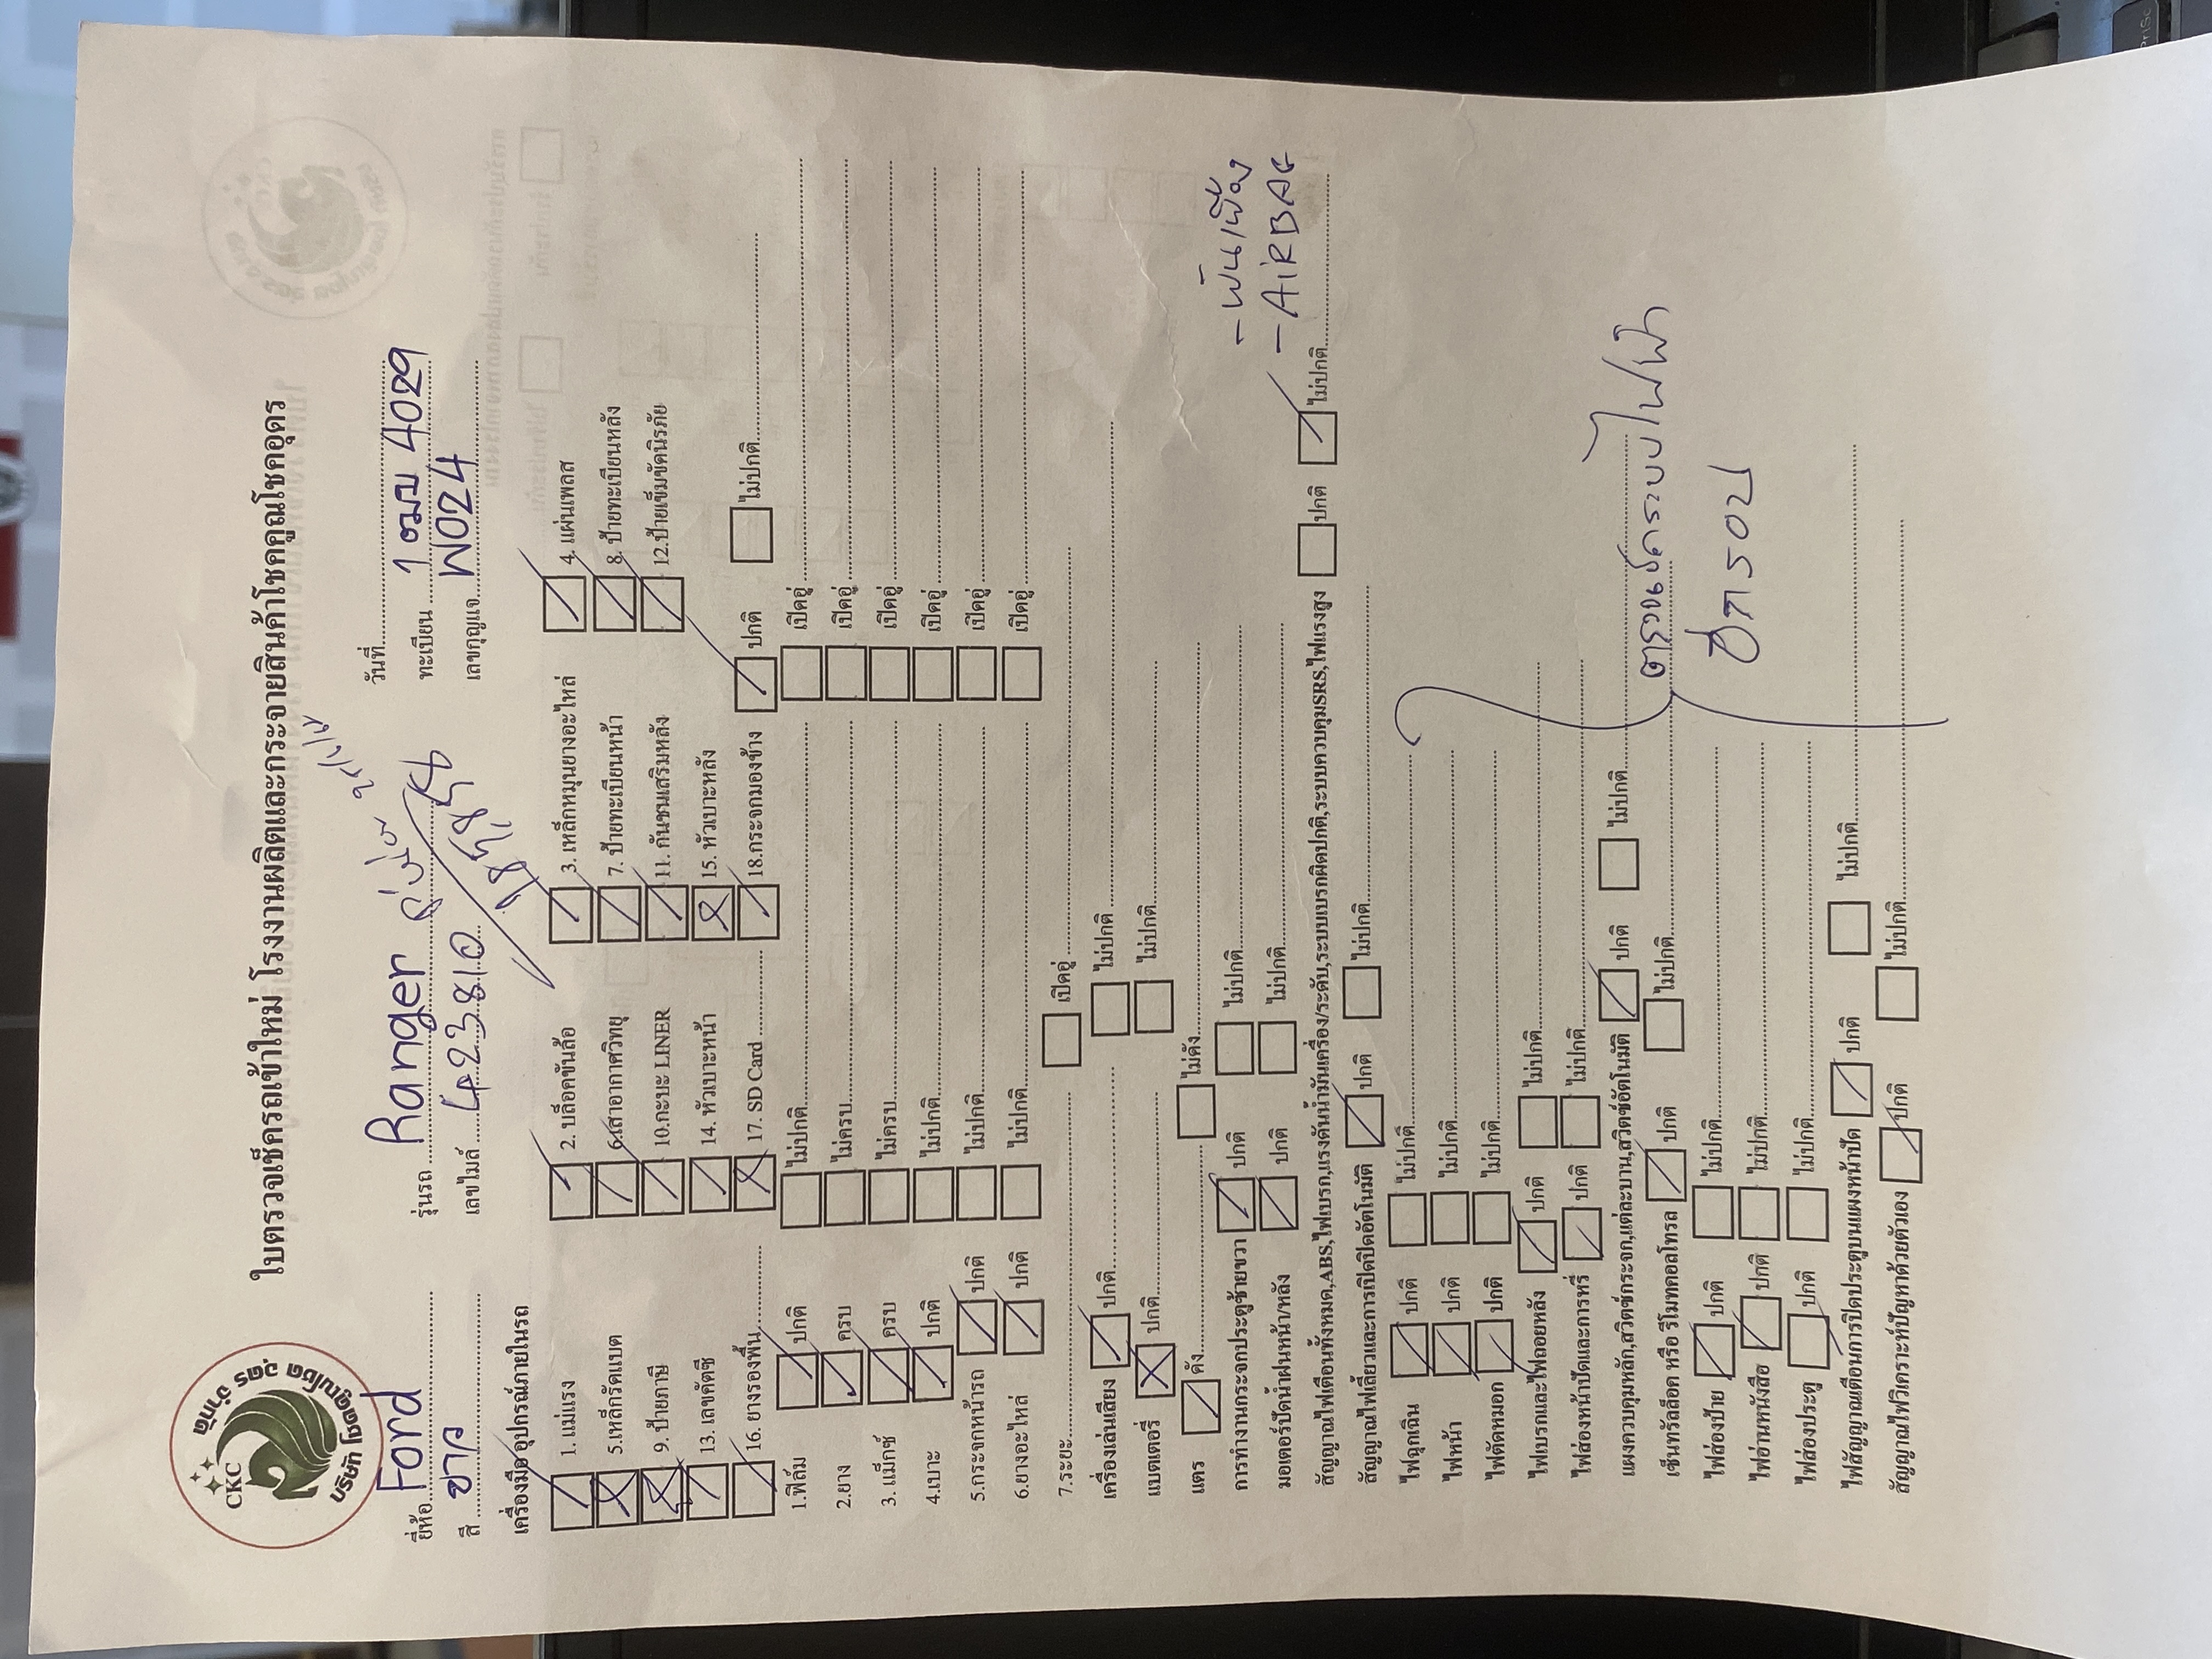 CKC
บริษัท โชคคูณโชค อุดร จำกัด
ใบตรวจเช็ครถเข้าใหม่ โรงงานผลิตและกระจายสินค้าโชคคูณโชคอุดร
วันที่
ยี่ห้อ Ford รุ่นรถ Ranger ทะเบียน 1 ฒฌ 4029
สี ขาว เลขไมล์ 423810 เลขกุญแจ W024
เครื่องมืออุปกรณ์ภายในรถ
1. แม่แรง 2. บล็อคขันล้อ 3. เหล็กหมุนยางอะไหล่ 4. แผ่นเพลส
5.เหล็กรัดแบต 6.เสาอากาศวิทยุ 7. ป้ายทะเบียนหน้า 8. ป้ายทะเบียนหลัง
9. ป้ายภาษี 10.กะบะ LINER 11. กันชนเสริมหลัง 12.ป้ายเข็มขัดนิรภัย
13. เลขคัตซี 14. หัวเบาะหน้า 15. หัวเบาะหลัง
16. ยางรองพื้น 17. SD Card 18.กระจกมองข้าง ปกติ ไม่ปกติ
1.ฟิล์ม ปกติ ไม่ปกติ เปิดอู่
2.ยาง ครบ ไม่ครบ เปิดอู่
3. แม็กซ์ ครบ ไม่ครบ เปิดอู่
4.เบาะ ปกติ ไม่ปกติ เปิดอู่
5.กระจกหน้ารถ ปกติ ไม่ปกติ เปิดอู่
6.ยางอะไหล่ ปกติ ไม่ปกติ เปิดอู่
7.ระยะ เปิดอู่
เครื่องเล่นเสียง ปกติ ไม่ปกติ
แบตเตอรี่ ปกติ ไม่ปกติ
แตร ดัง ไม่ดัง
การทำงานกระจกประตูซ้ายขวา ปกติ ไม่ปกติ
- พ้นเฟือง
มอเตอร์ปัดน้ำฝนหน้า/หลัง ปกติ ไม่ปกติ
- AIRBAG
สัญญาณไฟเตือนทั้งหมด,ABS,ไฟเบรก,แรงดันน้ำมันเครื่อง/ระดับ,ระบบเบรกผิดปกติ,ระบบควบคุมSRS,ไฟแรงสูง ปกติ ไม่ปกติ
สัญญาณไฟเลี้ยวและการเปิดปิดอัตโนมัติ ปกติ ไม่ปกติ
ไฟฉุกเฉิน ปกติ ไม่ปกติ
ไฟหน้า ปกติ ไม่ปกติ
ไฟตัดหมอก ปกติ ไม่ปกติ
ไฟเบรกและไฟถอยหลัง ปกติ ไม่ปกติ
ไฟส่องหน้าปัดและการหรี่ ปกติ ไม่ปกติ
แผงควบคุมหลัก,สวิตซ์กระจก,แต่ละบาน,สวิตซ์อัตโนมัติ ปกติ ไม่ปกติ
เซ็นทรัลล็อค หรือ รีโมทคอลโทรล ปกติ ไม่ปกติ
ตรวจเช็คระบบไฟฟ้า
อีกรอบ
ไฟส่องป้าย ปกติ ไม่ปกติ
ไฟอ่านหนังสือ ปกติ ไม่ปกติ
ไฟส่องประตู ปกติ ไม่ปกติ
ไฟสัญญาณเตือนการปิดประตูบนแผงหน้าปัด ปกติ ไม่ปกติ
สัญญาณไฟวิเคราะห์ปัญหาด้วยตัวเอง ปกติ ไม่ปกติ